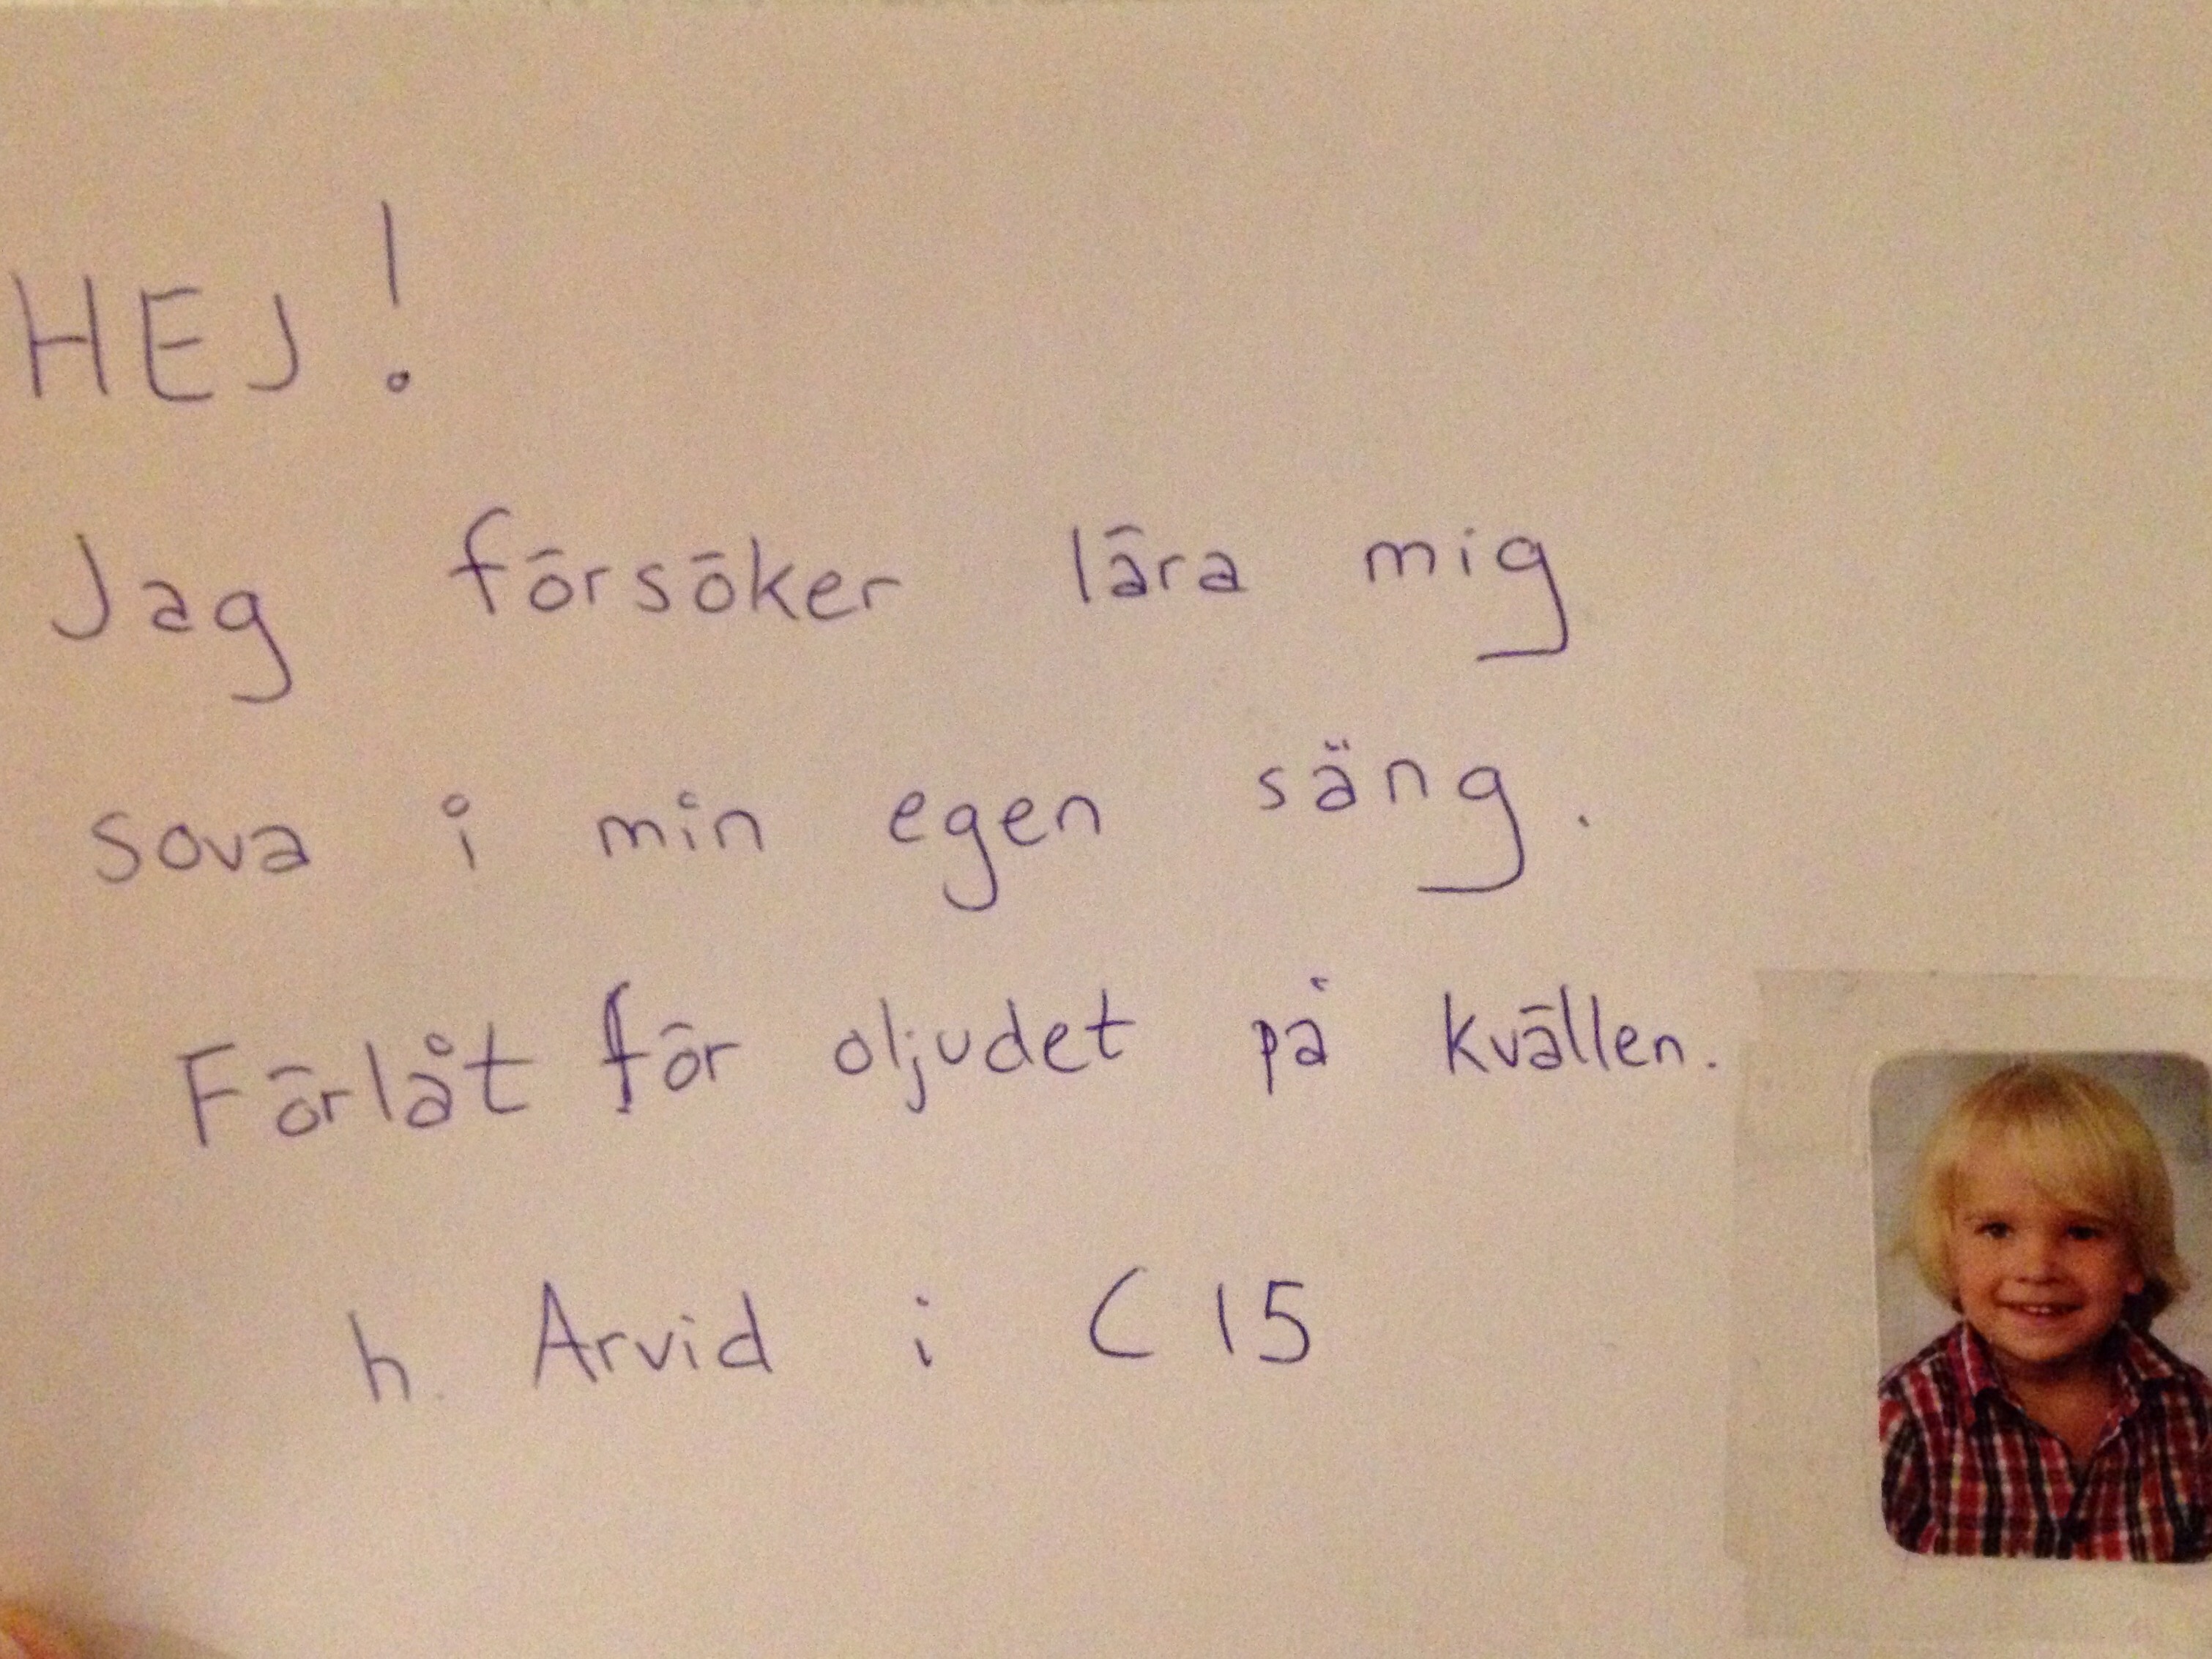 HEJ!
Jag försöker lära mig
sova i min egen säng.
Förlåt för oljudet på kvällen.
h. Arvid i C 15